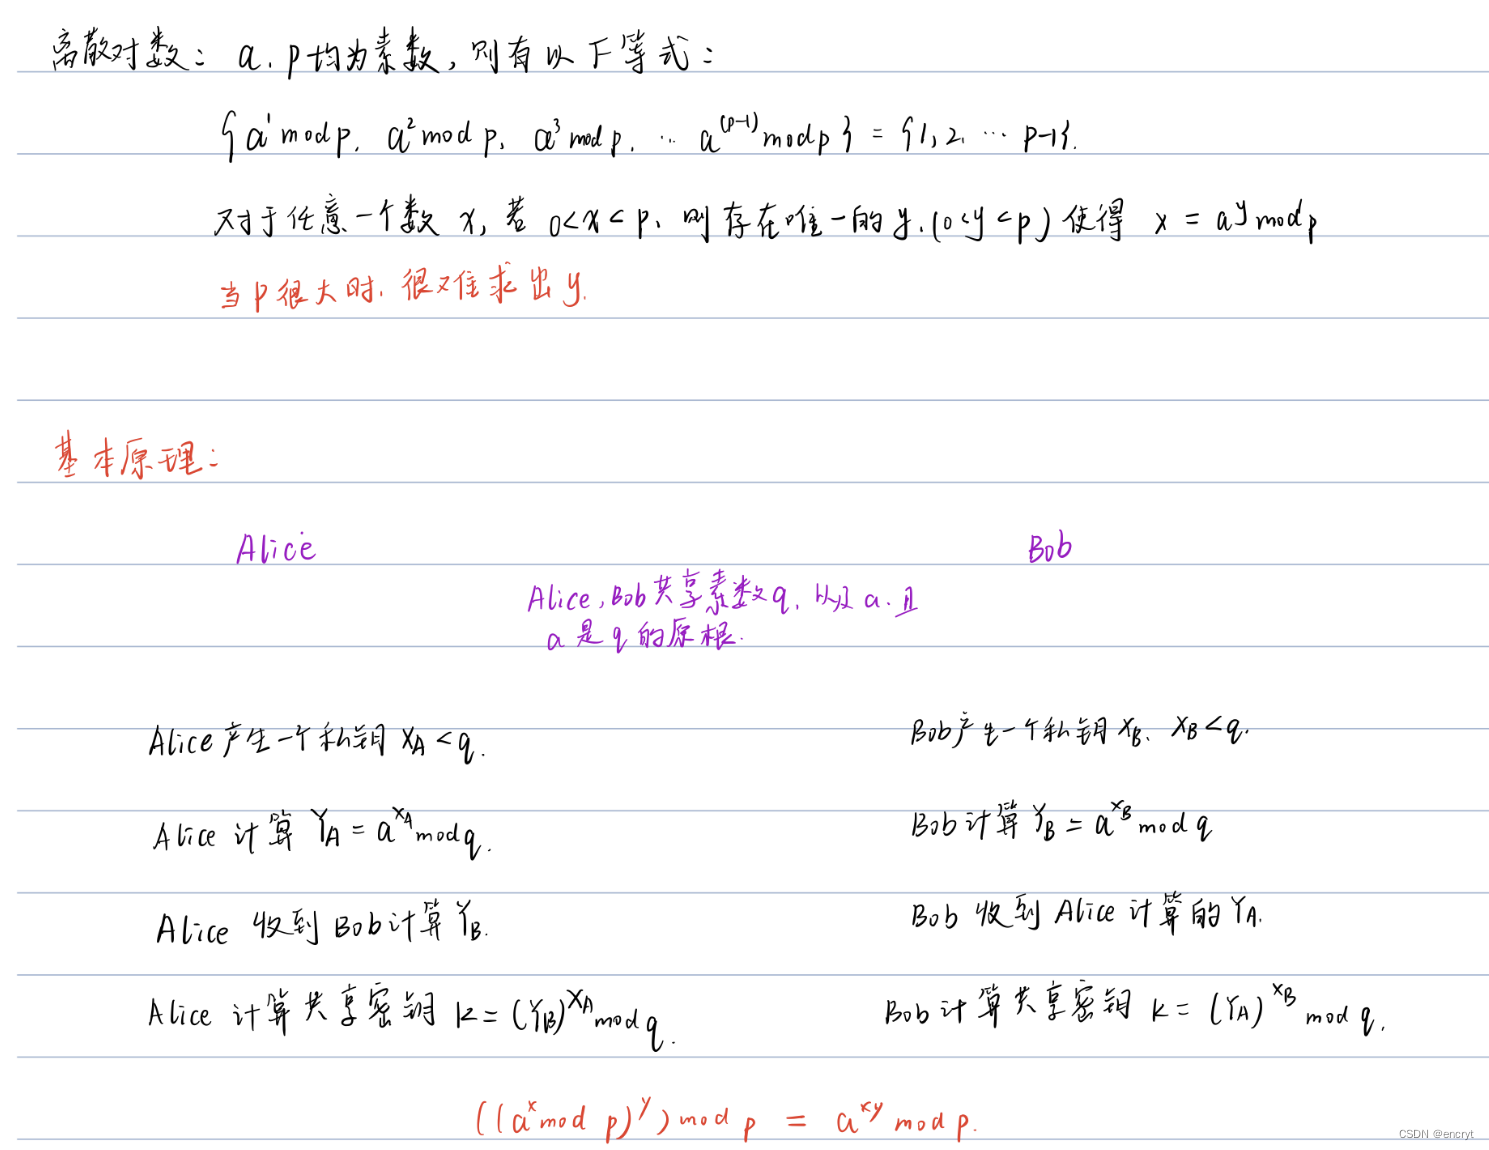 离散对数: a. p均为素数, 则有以下等式:
{a¹ mod p, a² mod p, a³ mod p, … a⁽ᵖ⁻¹⁾ mod p} = {1, 2, … p-1}.
对于任意一个数 x, 若 0<x<p, 则存在唯一的 y, (0<y<p) 使得 x = a^y mod p
当p很大时, 很难求出y.
基本原理:
Alice
Bob
Alice, Bob共享素数q, 以及a. 且
a 是 q 的原根.
Alice产生一个私钥 X_A < q.
Bob产生一个私钥 X_B, X_B < q.
Alice 计算 Y_A = a^{X_A} mod q.
Bob计算 Y_B = a^{X_B} mod q
Alice 收到Bob计算 Y_B.
Bob 收到 Alice 计算的 Y_A.
Alice 计算共享密钥 K = (Y_B)^{X_A} mod q.
Bob计算共享密钥 K = (Y_A)^{X_B} mod q.
((a^x mod p)^y) mod p = a^{xy} mod p.
CSDN @encryt